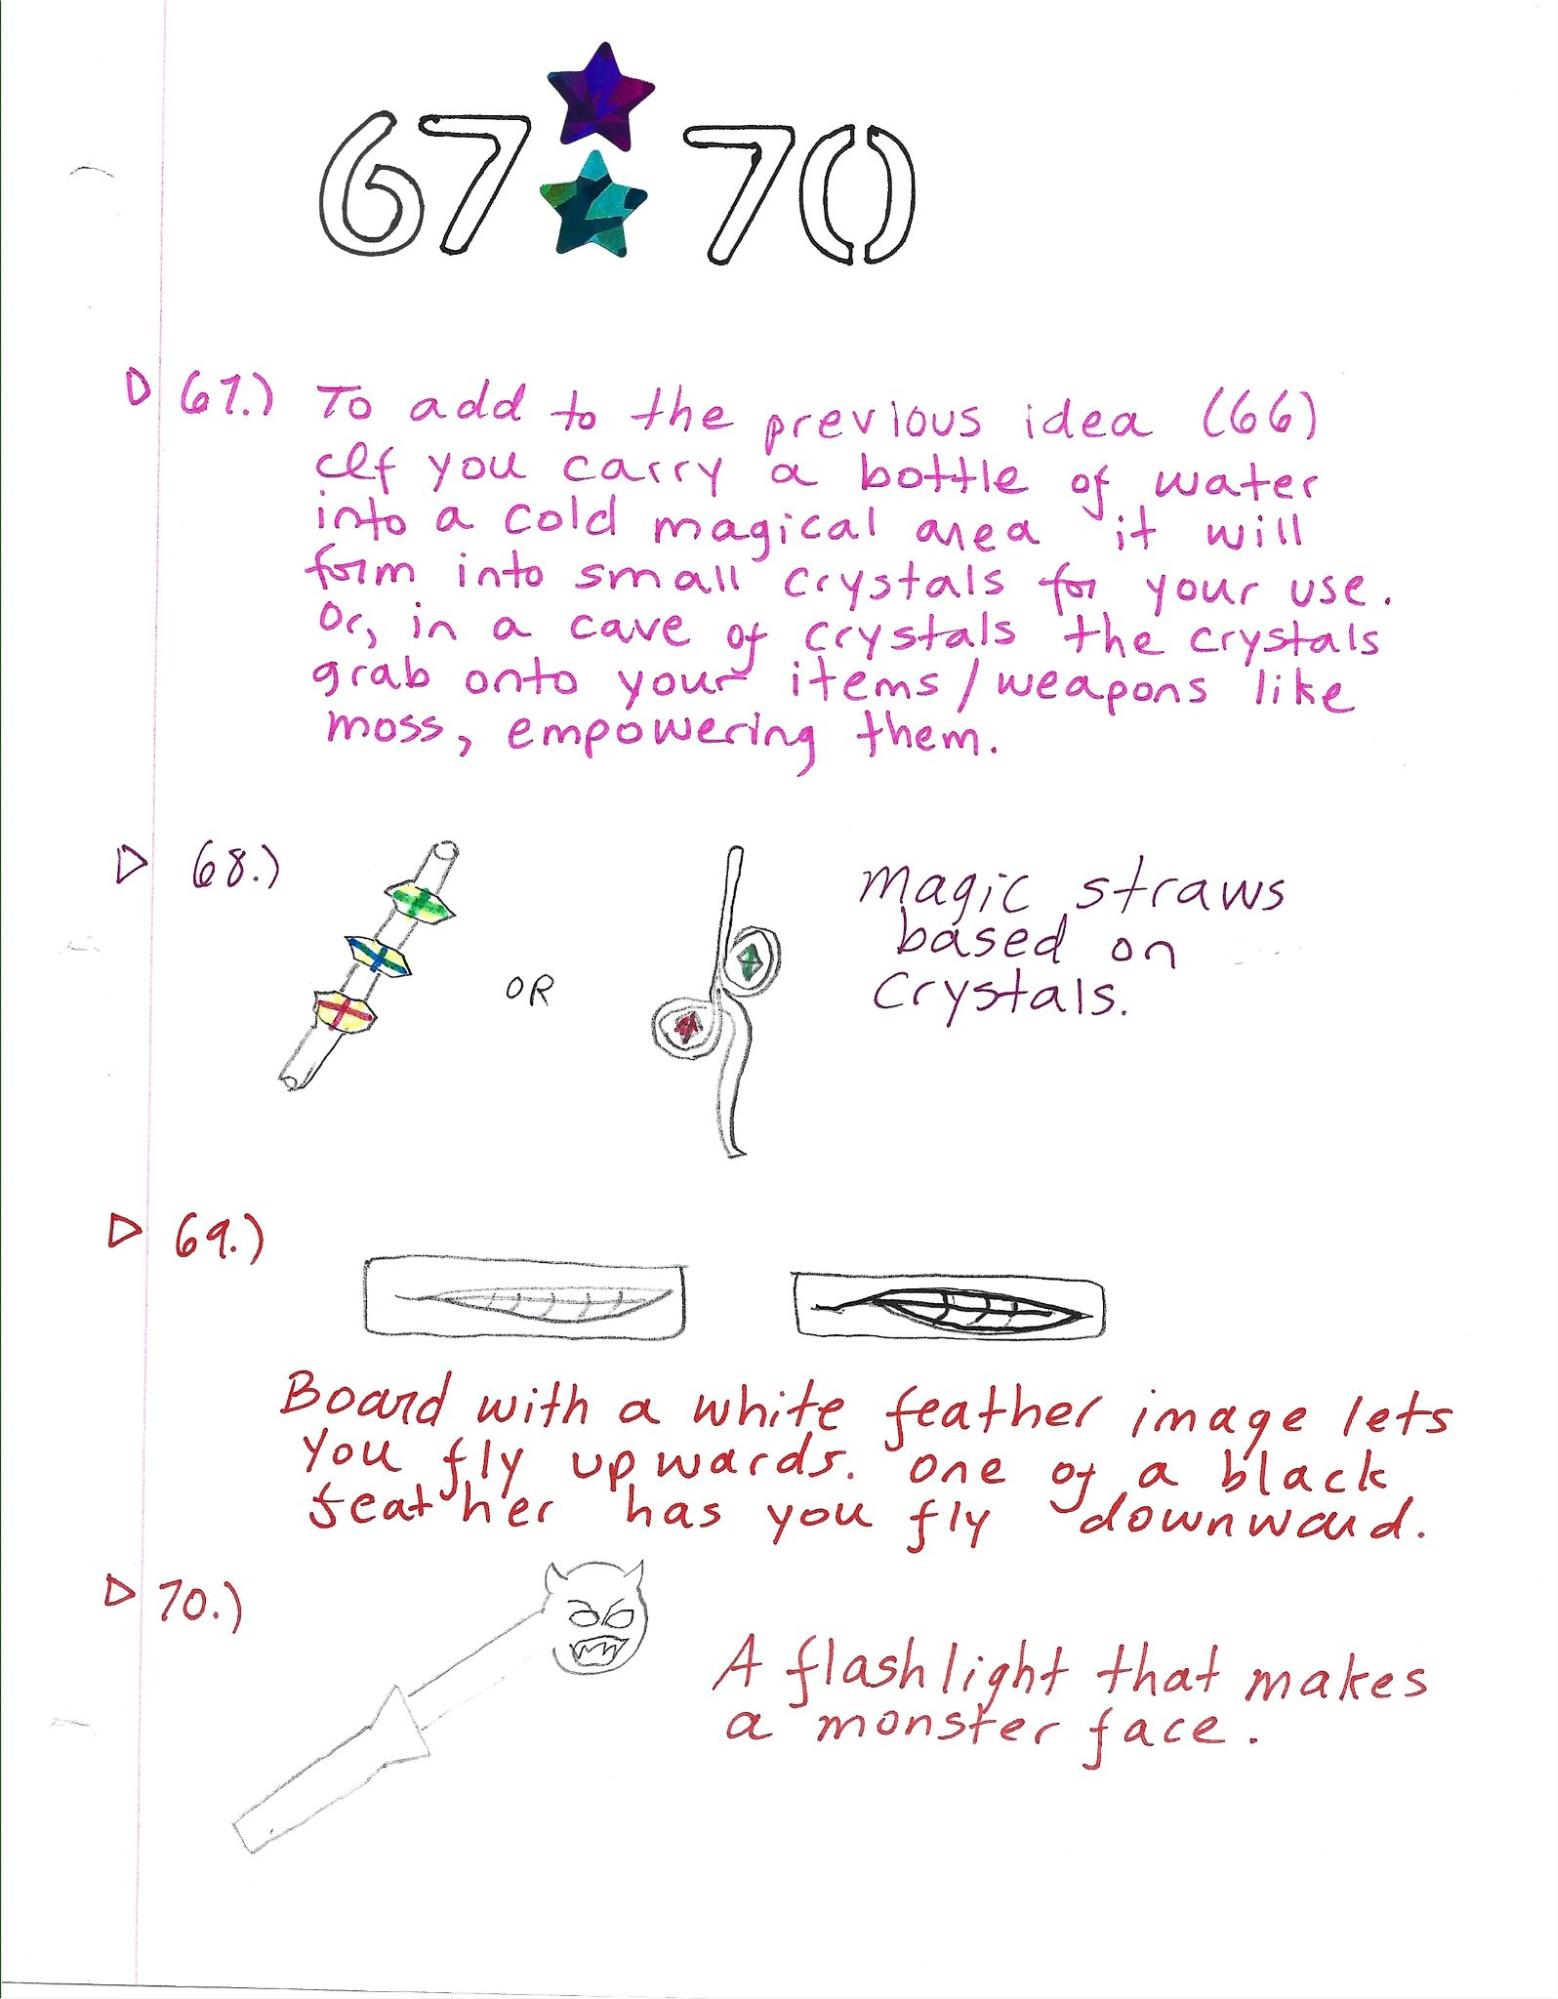 67 70
67.) To add to the previous idea (66)
If you carry a bottle of water
into a cold magical area it will
form into small crystals for your use.
Or, in a cave of crystals the crystals
grab onto your items/weapons like
moss, empowering them.
68.)
OR
Magic straws
based on
Crystals.
69.)
Board with a white feather image lets
you fly upwards. One of a black
feather has you fly downward.
70.)
A flashlight that makes
a monster face.